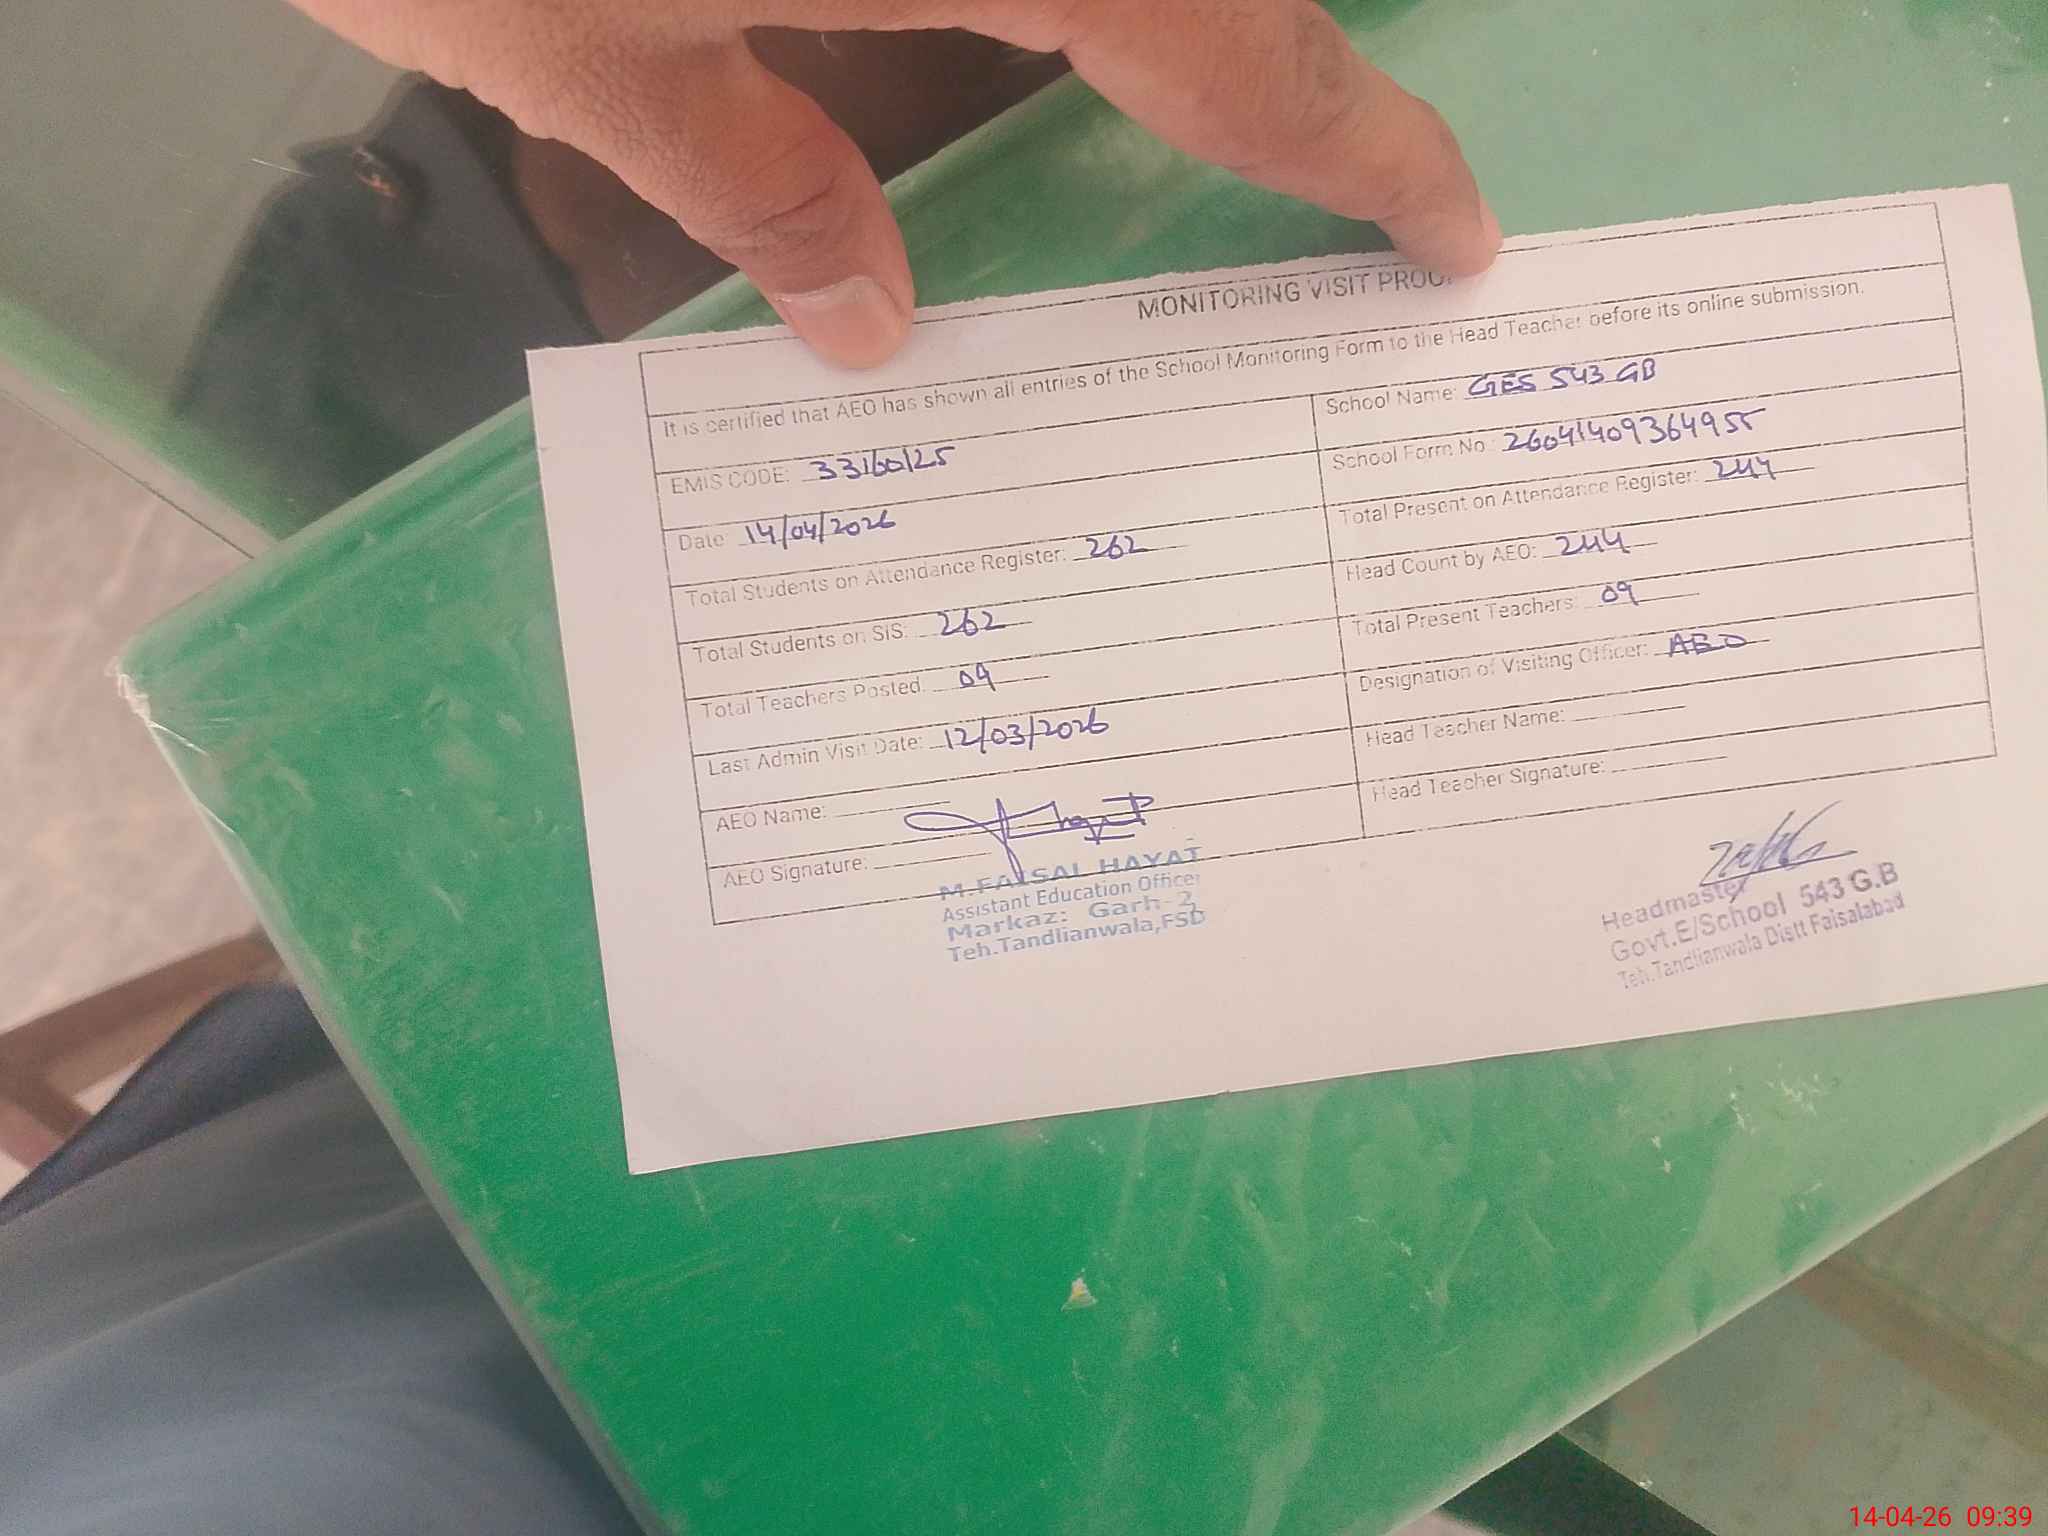 MONITORING VISIT PROOF
It is certified that AEO has shown all entries of the School Monitoring Form to the Head Teacher before its online submission.
EMIS CODE: 33160125
School Name: GES 543 GB
Date: 14/04/2026
School Form No: 26041409364955
Total Students on Attendance Register: 262
Total Present on Attendance Register: 244
Total Students on SIS: 262
Head Count by AEO: 244
Total Teachers Posted: 09
Total Present Teachers: 09
Last Admin Visit Date: 12/03/2026
Designation of Visiting Officer: AEO
AEO Name:
Head Teacher Name:
AEO Signature:
Head Teacher Signature:
M.FAISAL HAYAT
Assistant Education Officer
Markaz: Garh-2
Teh.Tandlianwala,FSD
Headmaster
Govt.E/School 543 G.B
Teh.Tandlianwala Distt Faisalabad
14-04-26 09:39